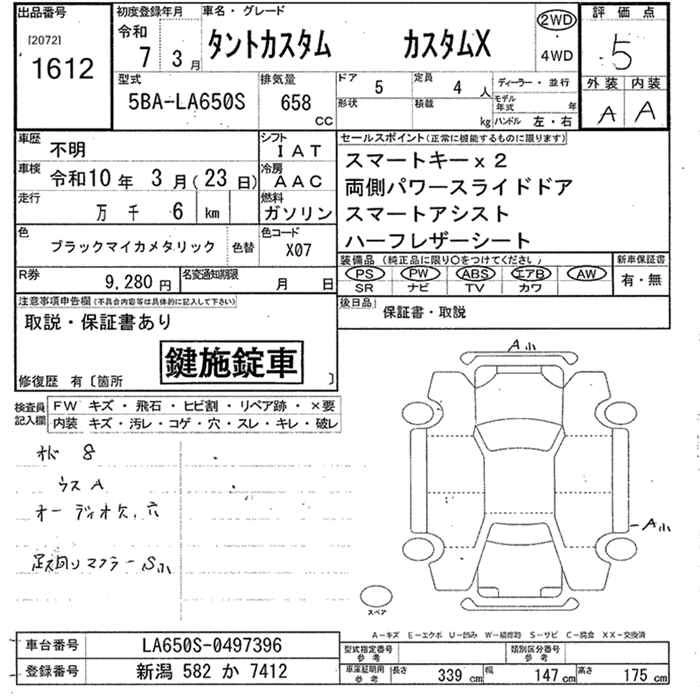 出品番号 初度登録年月 車名・グレード 評価点
[2072] 1612 令和 7 3月 タントカスタム カスタムX 2WD 4WD 5
型式 排気量 ドア 5 定員 4 人 ディーラー・並行 外装 内装
5BA-LA650S 658 CC 形状 積載 kg モデル年式 年 ハンドル 左・右 A A
車歴 不明 シフト IAT セールスポイント(正常に機能するものに限ります)
車検 令和10年 3月(23日) 冷房 AAC スマートキーx2
走行 万 千 6 km 燃料 ガソリン 両側パワースライドドア
色 ブラックマイカメタリック 色替 色コード X07 スマートアシスト
ハーフレザーシート
装備品(純正品に限り○をつけてください) 新車保証書
R券 9,280円 名変通知期限 月 日 PS PW ABS エアB AW 有・無
SR ナビ TV カワ
注意事項申告欄(不具合内容等は具体的に記入して下さい) 後日品 保証書・取説
取説・保証書あり
鍵施錠車
修復歴 有〔箇所 〕
検査員記入欄 FW キズ・飛石・ヒビ割・リペア跡・×要
内装 キズ・汚レ・コゲ・穴・スレ・キレ・破レ
A小
オド 8
ウス A
オーディオ欠、穴
A小
足廻り マフラー S小
スペア
A-キズ E-エクボ U-凹み W-補修跡 S-サビ C-腐食 XX-交換済
車台番号 LA650S-0497396 型式指定番号 参考 類別区分番号 参考
登録番号 新潟 582 か 7412 車庫証明用 参考 長さ 339 cm 幅 147 cm 高さ 175 cm